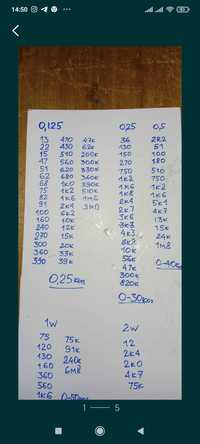 14:50
0,125
13 410 47k
22 430 62k
15 510 200k
47 560 300k
51 620 330k
62 680 360k
68 1k0 390k
75 1k2 510k
82 1k6 1M6
91 2k4 3M0
100 6k2
160 10k
240 12k
270 15k
300 20k
360 33k
390 39k
0,25коп
0,25 0,5
36 2R2
130 51
150 100
270 180
750 510
1k2 750
1k6 1k2
1k8 1k6
2k4 5k1
2k7 4k7
3k6 13k
15k
4k3 24k
1M8
10k
56k
47k
300k
820k
0-40коп
0-30коп
1W
75 75k
120 91k
130 240k
160 6M8
360
560
1k6
2W
12
2k4
2k0
4k7
75k
1 5